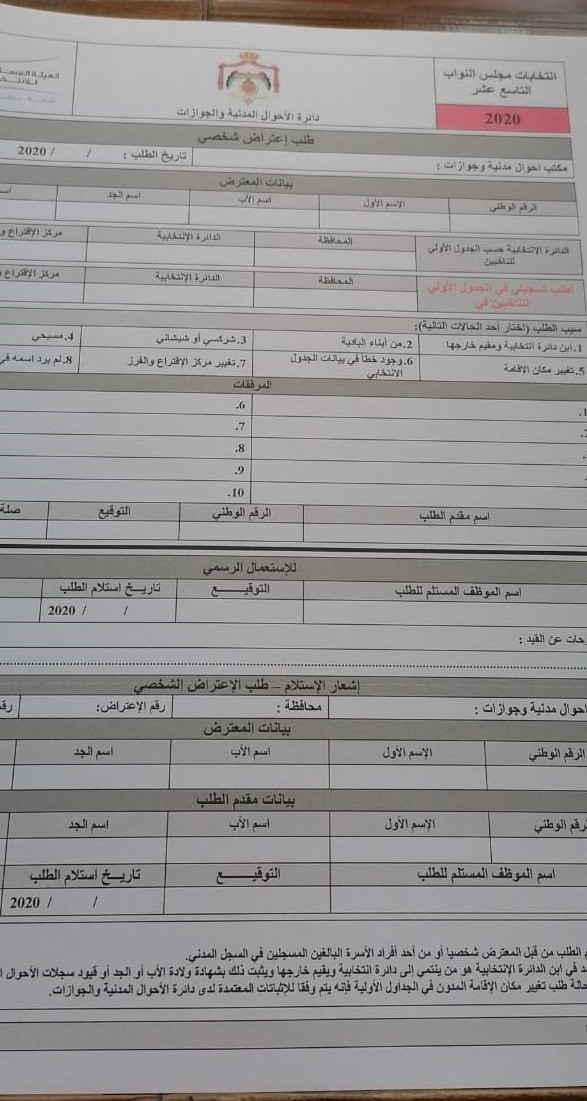 انتخابات مجلس النواب
التاسع عشر
2020
دائرة الأحوال المدنية والجوازات
طلب إعتراض شخصي
مكتب احوال مدنية وجوازات : تاريخ الطلب : / / 2020
بيانات المعترض
الرقم الوطني الإسم الأول اسم الأب اسم الجد
الدائرة الإنتخابية حسب الجدول الأولي المحافظة الدائرة الإنتخابية مركز الإقتراع و
للناخبين
أطلب تسجيلي في الجدول الأولي المحافظة الدائرة الإنتخابية مركز الإقتراع و
للناخبين في
سبب الطلب (اختار أحد الحالات التالية):
1.ابن دائرة انتخابية ومقيم خارجها 2.من أبناء البادية 3.شركسي أو شيشاني 4.مسيحي
5.تغيير مكان الإقامة 6.وجود خطأ في بيانات الجدول 7.تغيير مركز الإقتراع والفرز 8.لم يرد اسمه في
الانتخابي
المرفقات
1. 6.
7.
8.
9.
10.
اسم مقدم الطلب الرقم الوطني التوقيع صلة
للإستعمال الرسمي
اسم الموظف المستلم للطلب التوقيــــع تاريــخ استلام الطلب
/ / 2020
رحات عن القيد :
إشعار الإستلام – طلب الإعتراض الشخصي
احوال مدنية وجوازات : محافظة : رقم الإعتراض:
بيانات المعترض
الرقم الوطني الإسم الأول اسم الأب اسم الجد
بيانات مقدم الطلب
لرقم الوطني الإسم الأول اسم الأب اسم الجد
اسم الموظف المستلم للطلب التوقيــــع تاريــخ استلام الطلب
/ / 2020
م الطلب من قبل المعترض شخصيا أو من أحد أفراد الأسرة البالغين المسجلين في السجل المدني.
د في ابن الدائرة الإنتخابية هو من ينتمي إلى دائرة انتخابية ويقيم خارجها ويثبت ذلك بشهادة ولادة الأب أو الجد أو قيود سجلات الأحوال
حالة طلب تغيير مكان الإقامة المدون في الجداول الأولية فإنه يتم وفقا للإثباتات المعتمدة لدى دائرة الأحوال المدنية والجوازات.